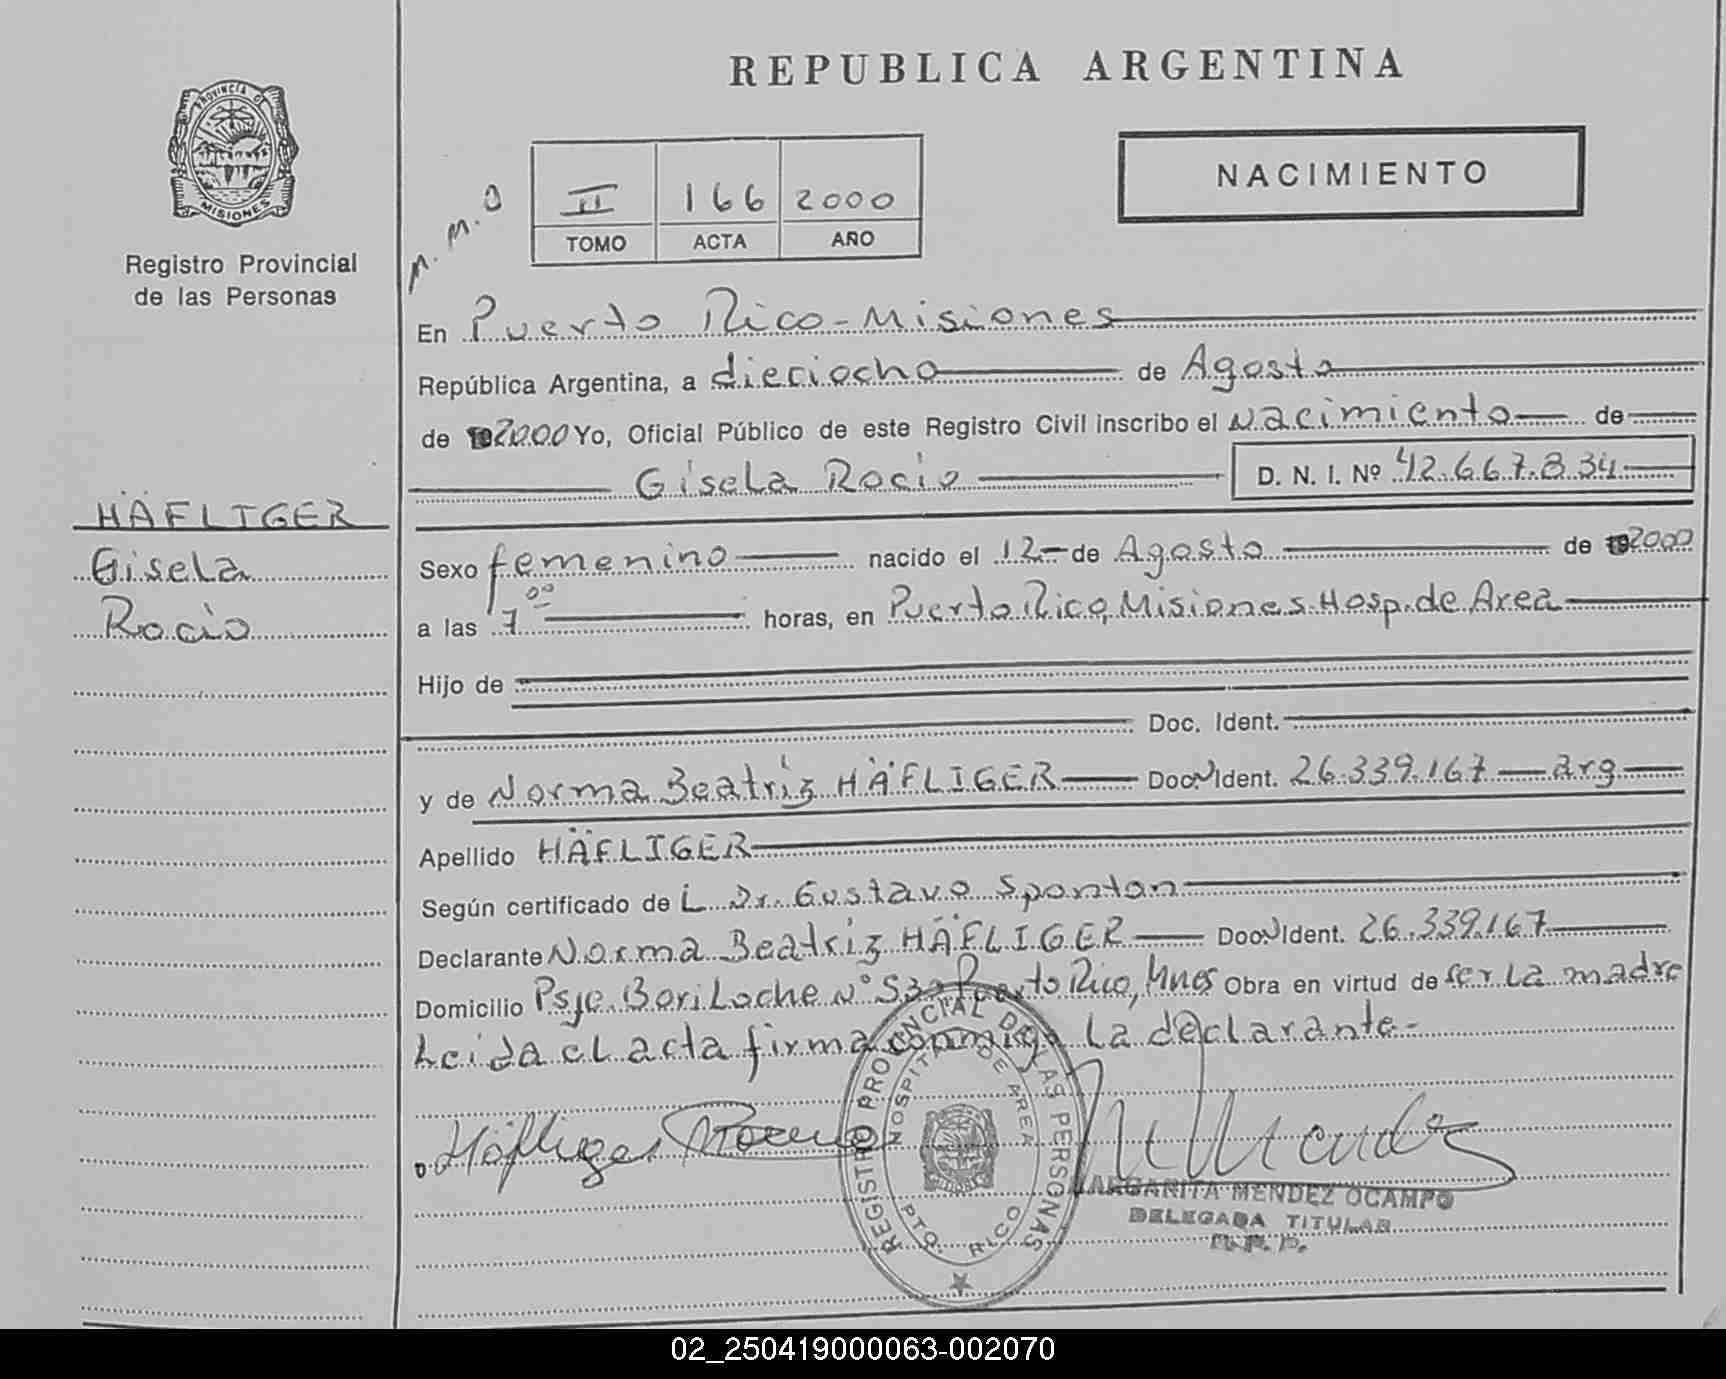 REPUBLICA ARGENTINA
PROVINCIA DE
MISIONES
Registro Provincial
de las Personas
NACIMIENTO
M.M.O
II 166 2000
TOMO ACTA AÑO
En Puerto Rico - Misiones
República Argentina, a dieciocho de Agosto
de 2000 Yo, Oficial Público de este Registro Civil inscribo el Nacimiento de
Gisela Rocio D. N. I. Nº 42.667.834
HÄFLIGER
Gisela
Rocio
Sexo femenino nacido el 12 de Agosto de 2000
a las 7 00 horas, en Puerto Rico, Misiones. Hosp. de Area
Hijo de
Doc. Ident.
y de Norma Beatriz HÄFLIGER Doc. Ident. 26.339.167 arg
Apellido HÄFLIGER
Según certificado de L Dr. Gustavo Sponton
Declarante Norma Beatriz HÄFLIGER Doc. Ident. 26.339.167
Domicilio Psje. BariLoche Nº 530 Puerto Rico, Mnes Obra en virtud de ser La madre
Leida el acta firma conmigo La declarante-
Häfliger
REGISTRO PROVINCIAL DE LAS PERSONAS
HOSPITAL DE AREA
PTO. RICO
MARGARITA MENDEZ OCAMPO
DELEGADA TITULAR
R.P.P.
02_250419000063-002070